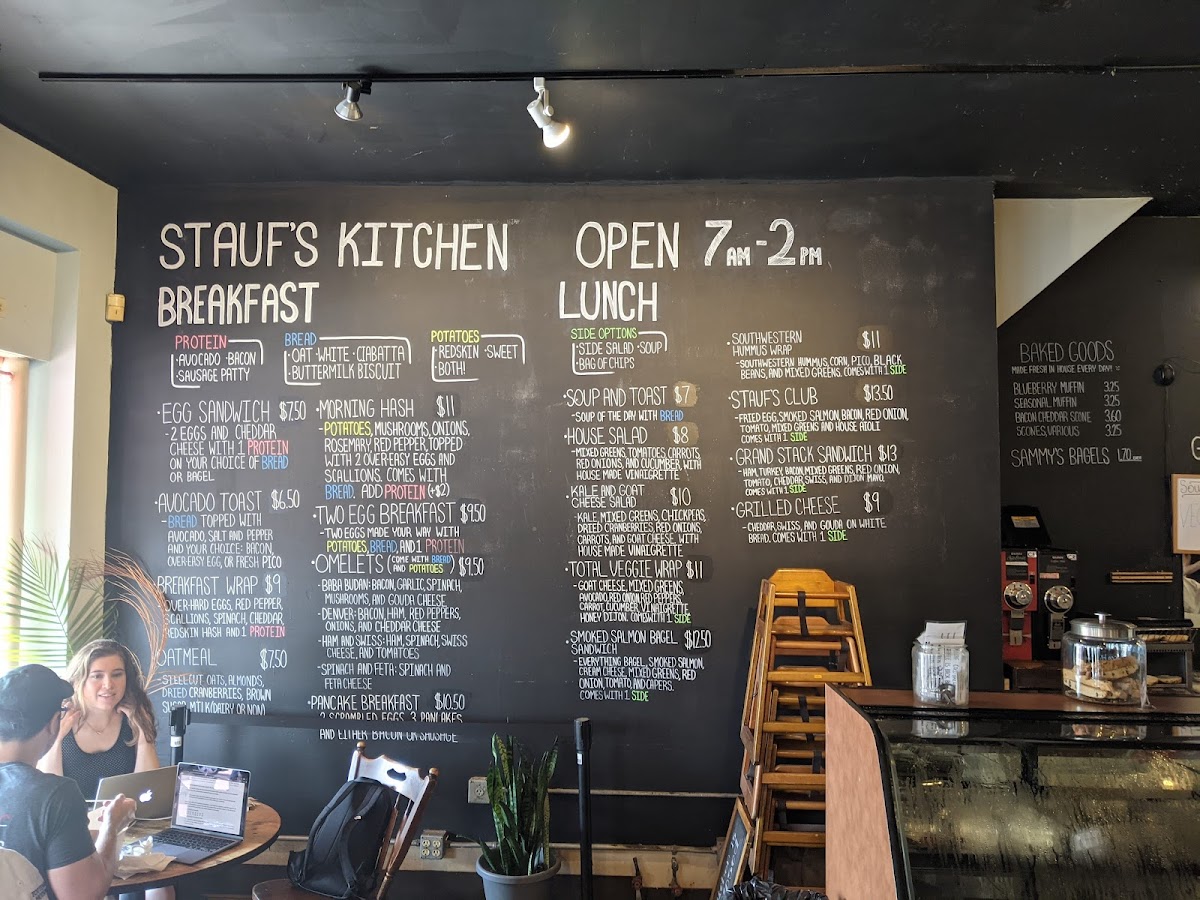 STAUF'S KITCHEN
OPEN 7AM-2PM
BREAKFAST
PROTEIN
·AVOCADO ·BACON
·SAUSAGE PATTY
BREAD
·OAT ·WHITE ·CIABATTA
·BUTTERMILK BISCUIT
POTATOES
·REDSKIN ·SWEET
·BOTH!
·EGG SANDWICH $7.50
-2 EGGS AND CHEDDAR
CHEESE WITH 1 PROTEIN
ON YOUR CHOICE OF BREAD
OR BAGEL
·AVOCADO TOAST $6.50
-BREAD TOPPED WITH
AVOCADO, SALT AND PEPPER
AND YOUR CHOICE: BACON,
OVER-EASY EGG, OR FRESH PICO
BREAKFAST WRAP $9
OVER-HARD EGGS, RED PEPPER,
SCALLIONS, SPINACH, CHEDDAR,
REDSKIN HASH AND 1 PROTEIN
OATMEAL $7.50
-STEEL CUT OATS, ALMONDS,
DRIED CRANBERRIES, BROWN
SUGAR, MILK (DAIRY OR NON)
·MORNING HASH $11
-POTATOES, MUSHROOMS, ONIONS,
ROSEMARY, RED PEPPER, TOPPED
WITH 2 OVER-EASY EGGS AND
SCALLIONS. COMES WITH
BREAD. ADD PROTEIN (+$2)
·TWO EGG BREAKFAST $9.50
-TWO EGGS MADE YOUR WAY WITH
POTATOES, BREAD, AND 1 PROTEIN
·OMELETS (COME WITH BREAD AND POTATOES) $9.50
-BABA BUDAN: BACON, GARLIC, SPINACH,
MUSHROOMS, AND GOUDA CHEESE
-DENVER: BACON, HAM, RED PEPPERS,
ONIONS, AND CHEDDAR CHEESE
-HAM AND SWISS: HAM, SPINACH, SWISS
CHEESE, AND TOMATOES
-SPINACH AND FETA: SPINACH AND
FETA CHEESE
·PANCAKE BREAKFAST $10.50
2 SCRAMBLED EGGS, 3 PANCAKES
AND EITHER BACON OR SAUSAGE
LUNCH
SIDE OPTIONS
·SIDE SALAD ·SOUP
·BAG OF CHIPS
·SOUP AND TOAST $7
-SOUP OF THE DAY WITH BREAD
·HOUSE SALAD $8
-MIXED GREENS, TOMATOES, CARROTS,
RED ONIONS, AND CUCUMBER, WITH
HOUSE MADE VINAIGRETTE
·KALE AND GOAT
CHEESE SALAD $10
-KALE, MIXED GREENS, CHICKPEAS,
DRIED CRANBERRIES, RED ONIONS,
CARROTS, AND GOAT CHEESE, WITH
HOUSE MADE VINAIGRETTE
·TOTAL VEGGIE WRAP $11
-GOAT CHEESE, MIXED GREENS,
AVOCADO, RED ONION, RED PEPPERS,
CARROT, CUCUMBER, VINAIGRETTE,
HONEY DIJON. COMES WITH 1 SIDE
·SMOKED SALMON BAGEL $12.50
SANDWICH
-EVERYTHING BAGEL, SMOKED SALMON,
CREAM CHEESE, MIXED GREENS, RED
ONION, TOMATO, AND CAPERS.
COMES WITH 1 SIDE
·SOUTHWESTERN $11
HUMMUS WRAP
-SOUTHWESTERN HUMMUS, CORN, PICO, BLACK
BEANS, AND MIXED GREENS. COMES WITH 1 SIDE
·STAUF'S CLUB $13.50
-FRIED EGG, SMOKED SALMON, BACON, RED ONION,
TOMATO, MIXED GREENS AND HOUSE AIOLI
COMES WITH 1 SIDE
·GRAND STACK SANDWICH $13
-HAM, TURKEY, BACON, MIXED GREENS, RED ONION,
TOMATO, CHEDDAR, SWISS, AND DIJON MAYO.
COMES WITH 1 SIDE
·GRILLED CHEESE $9
-CHEDDAR, SWISS, AND GOUDA ON WHITE
BREAD. COMES WITH 1 SIDE
BAKED GOODS
MADE FRESH IN HOUSE EVERY DAY!
BLUEBERRY MUFFIN 3.25
SEASONAL MUFFIN 3.25
BACON CHEDDAR SCONE 3.60
SCONES, VARIOUS 3.25
SAMMY'S BAGELS 1.70